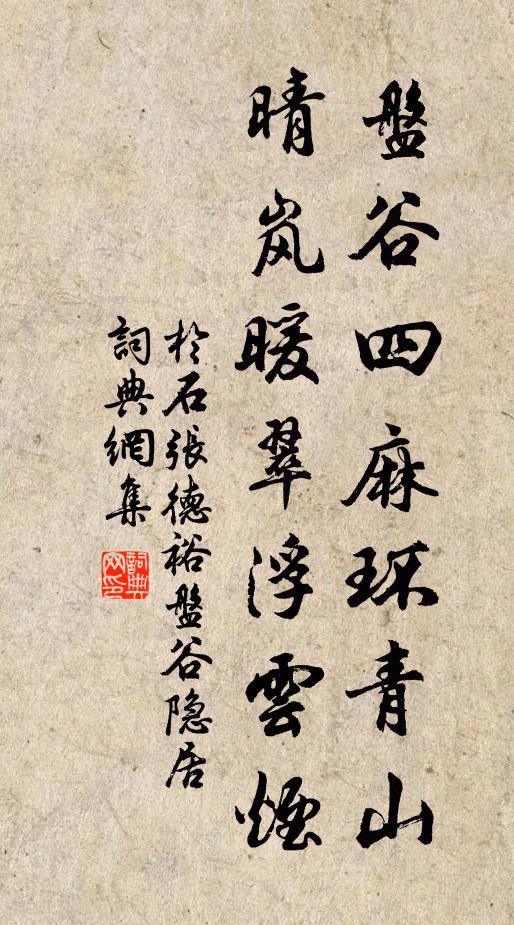 盤谷四麻环青山
晴岚暖翠浮雲煙
於石張德裕盤谷隐居
詞典網集
詞典网印